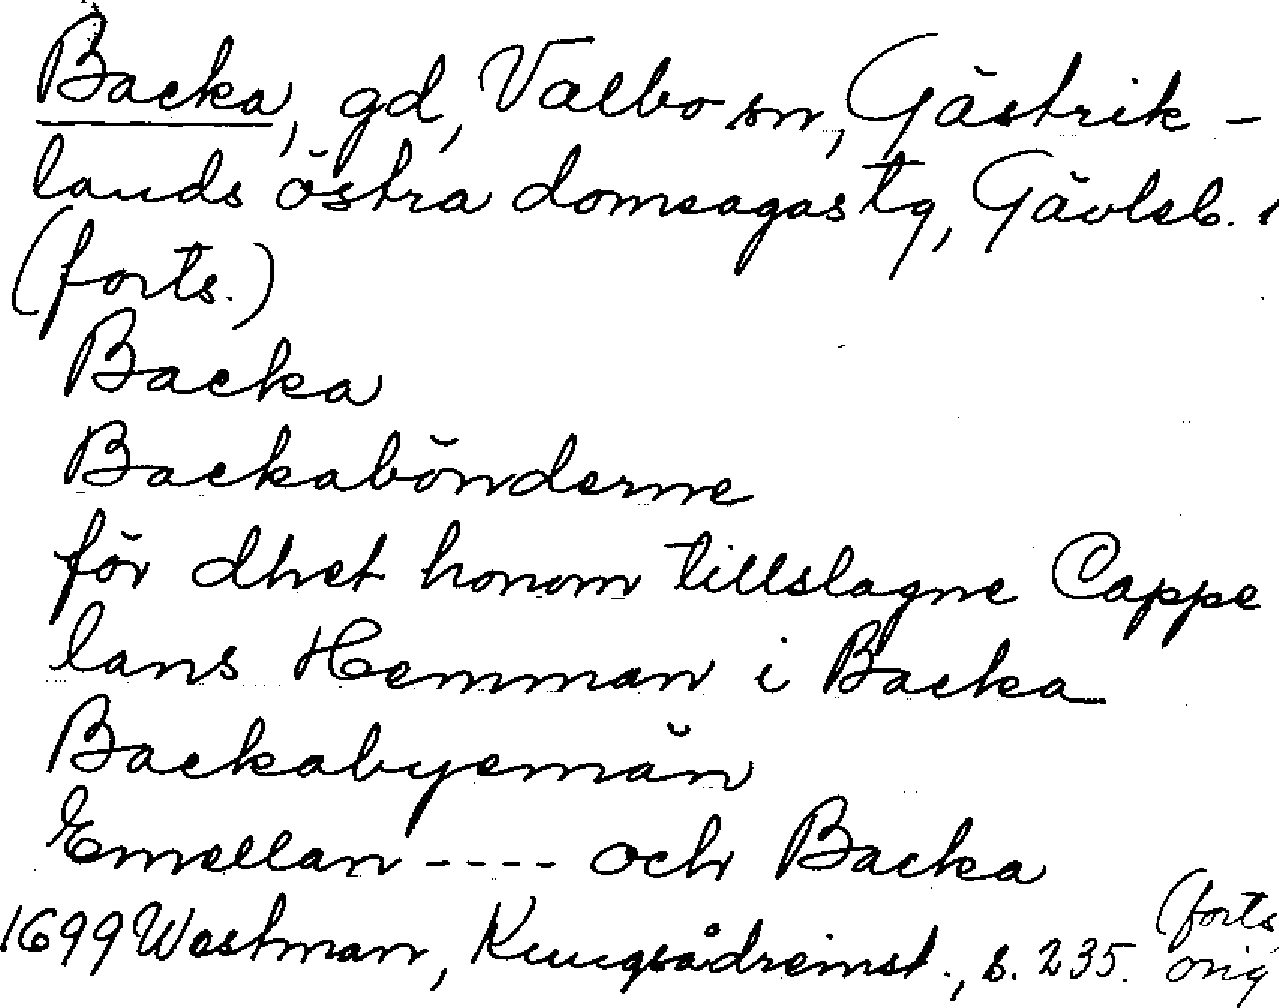 Backa, gd, Valbo sn, Gästrik-
lands östra domsagas tg, Gävleb. l
(forts.)
Backa
Backabönderne
för dhet honom tillslagne Cappe
lans Hemman i Backa
Backabyemän
Emellan ---- och Backa
1699 Westman, Kungsådreinst., s. 235. (forts
orig